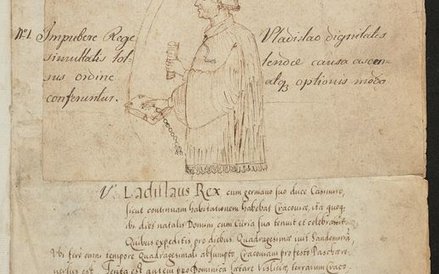 No 1. Impubere Rege Vladislao dignitates
simultatis tol- lendæ causa ascen-
sus ordine atq optionis modo
conferuntur.
V. Ladislaus Rex cum germano suo duce Casimiro,
sicut continuam habitationem habebat Cracoviæ, ita quoq
ibi dies natalis Domini cum Curia sua tenuit et celebravit.
Quibus expeditis pro diebus Quadragesimæ ivit Sandomiriã
Ubi fere toto tempore Quadragesimali absumpto, Cracoviam pro festo Paschatis
reversus est. Tenta est autem pro Dominica Lætare Vislitiæ, terrarum Craco